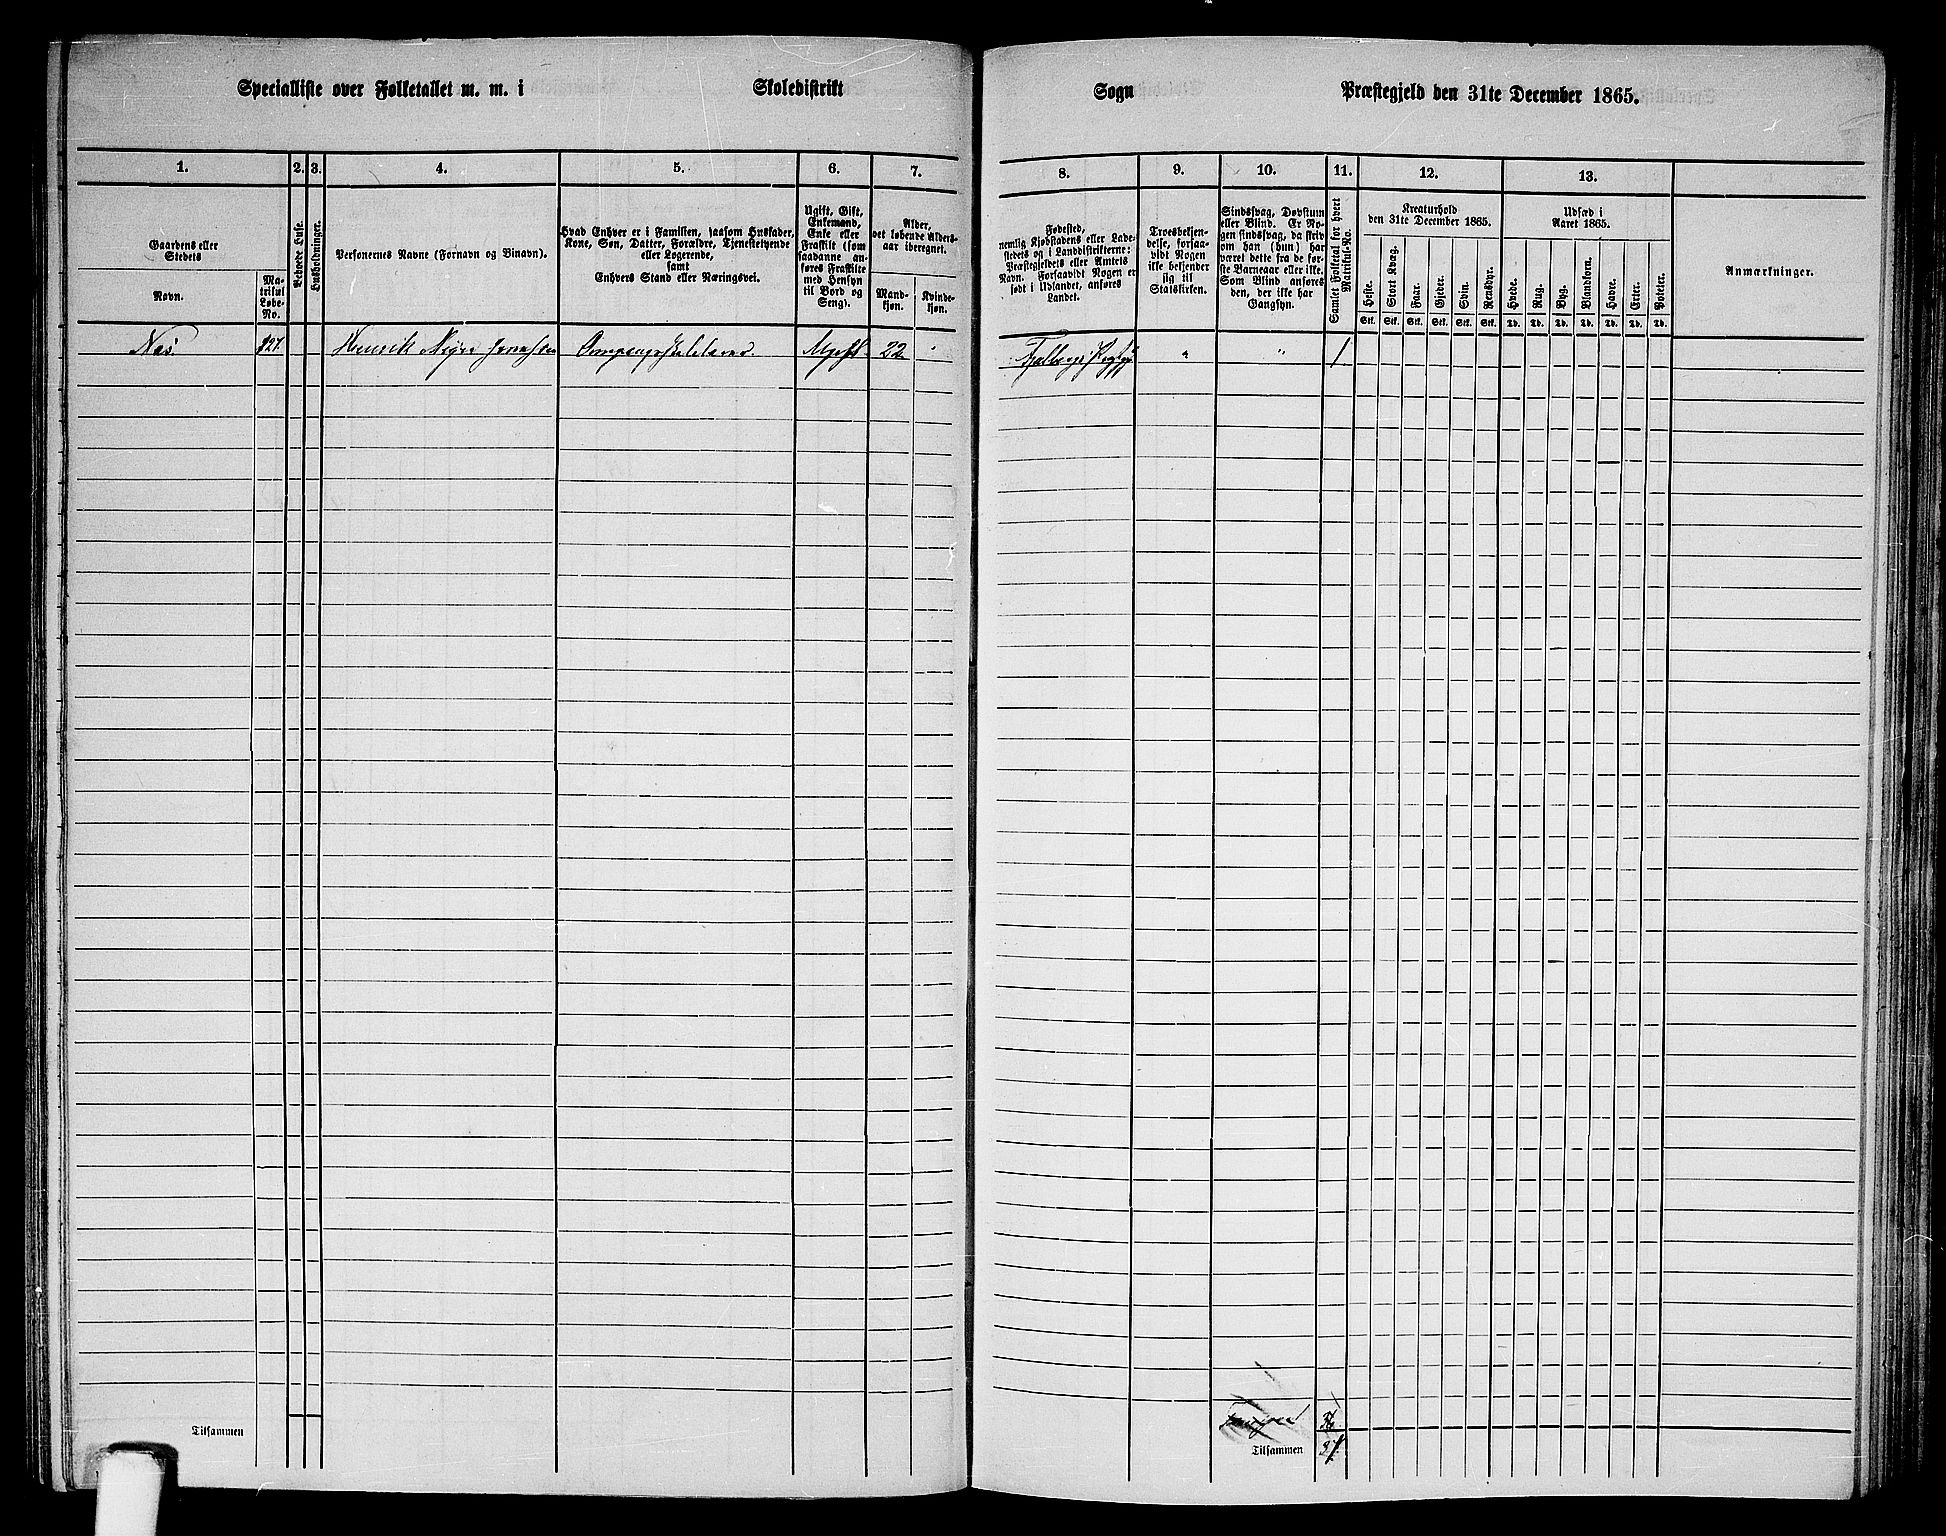 Specialliste over Folketallet m. m. i Skoledistrikt Sogn Præstegjeld den 31te December 1865.
1. 2. 3. 4. 5. 6. 7. 8. 9. 10. 11. 12. 13.
Gaardens eller
Stedets
Navn.
Ma-
trikul
Løbe-
No.
Beboede Huse.
Husholdninger.
Personernes Navne (Fornavn og Binavn).
Hvad Enhver er i Familien, saasom Husfader,
Kone, Søn, Datter, Forældre, Tjenestetyende
eller Logerende,
samt
Enhvers Stand eller Næringsvei.
Ugift, Gift,
Enkemand,
Enke eller
Fraskilt (som
saadanne an-
føres Fraskilte
med Hensyn
til Bord og
Seng).
Alder,
det løbende Alders-
aar iberegnet.
Mand-
kjøn.
Kvinde-
kjøn.
Fødested,
nemlig Kjøbstadens eller Lade-
stedets og i Landdistrikterne:
Præstegjeldets eller Amtets
Navn. Forsaavidt Nogen er
født i Udlandet, anføres
Landet.
Troesbekjen-
delse, forsaa-
vidt Nogen
ikke bekjender
sig til
Statskirken.
Sindssvag, Døvstum
eller Blind. Er No-
gen sindssvag, da skriv
om han (hun) har
været dette fra de før-
ste Barneaar eller ikke.
Som Blind anføres
den, der ikke har
Gangsyn.
Samlet Folketal for hvert
Matrikul-No.
Kreaturhold
den 31te December 1865.
Heste. Stort Kvæg. Faar. Gjeder. Svin. Rensdyr.
Stk. Stk. Stk. Stk. Stk. Stk.
Udsæd i
Aaret 1865.
Hvede. Rug. Byg. Blandkorn. Havre. Erter. Poteter.
Td. Td. Td. Td. Td. Td. Td.
Anmærkninger.
Næs 127. Henrik Omgangsskolelærer. Ugift 22 " " " 1
Tilsammen
Tilsammen 37